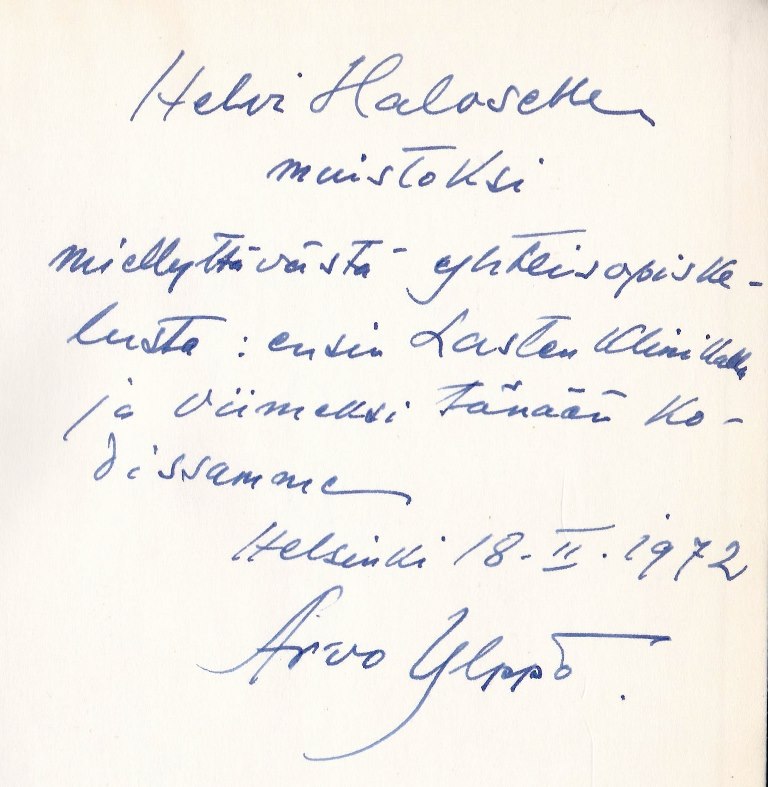 Helvi Haloselle
muistoksi
miellyttävästä yhteisopiske-
lusta : ensin Lasten Klinikalla
ja viimeksi tänään ko-
dissamme
Helsinki 18-II-1972
Arvo Ylppö.